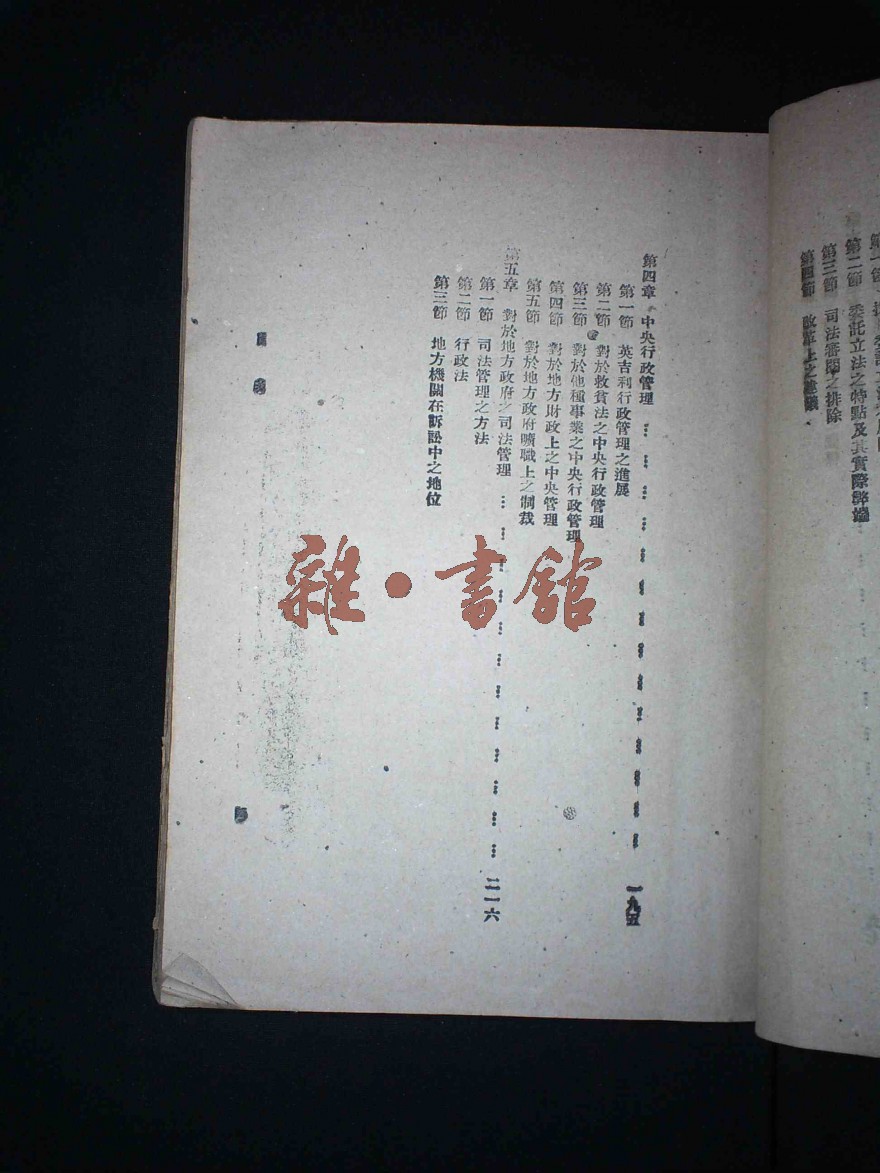 第二節 委託立法之特點及其實際弊端
第三節 司法審閱之排除
第四節 改革上之建議
第四章 中央行政管理 一九五
第一節 英吉利行政管理之進展
第二節 對於救貧法之中央行政管理
第三節 對於他種事業之中央行政管理
第四節 對於地方財政上之中央管理
第五節 對於地方政府曠職上之制裁
第五章 對於地方政府之司法管理 二一六
第一節 司法管理之方法
第二節 行政法
第三節 地方機關在訴訟中之地位
雜·書館